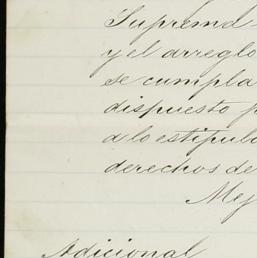 Suprema
y el arreglo
se cumpla
dispuesto p
a lo estipula
derechos de
Mej
Adicional